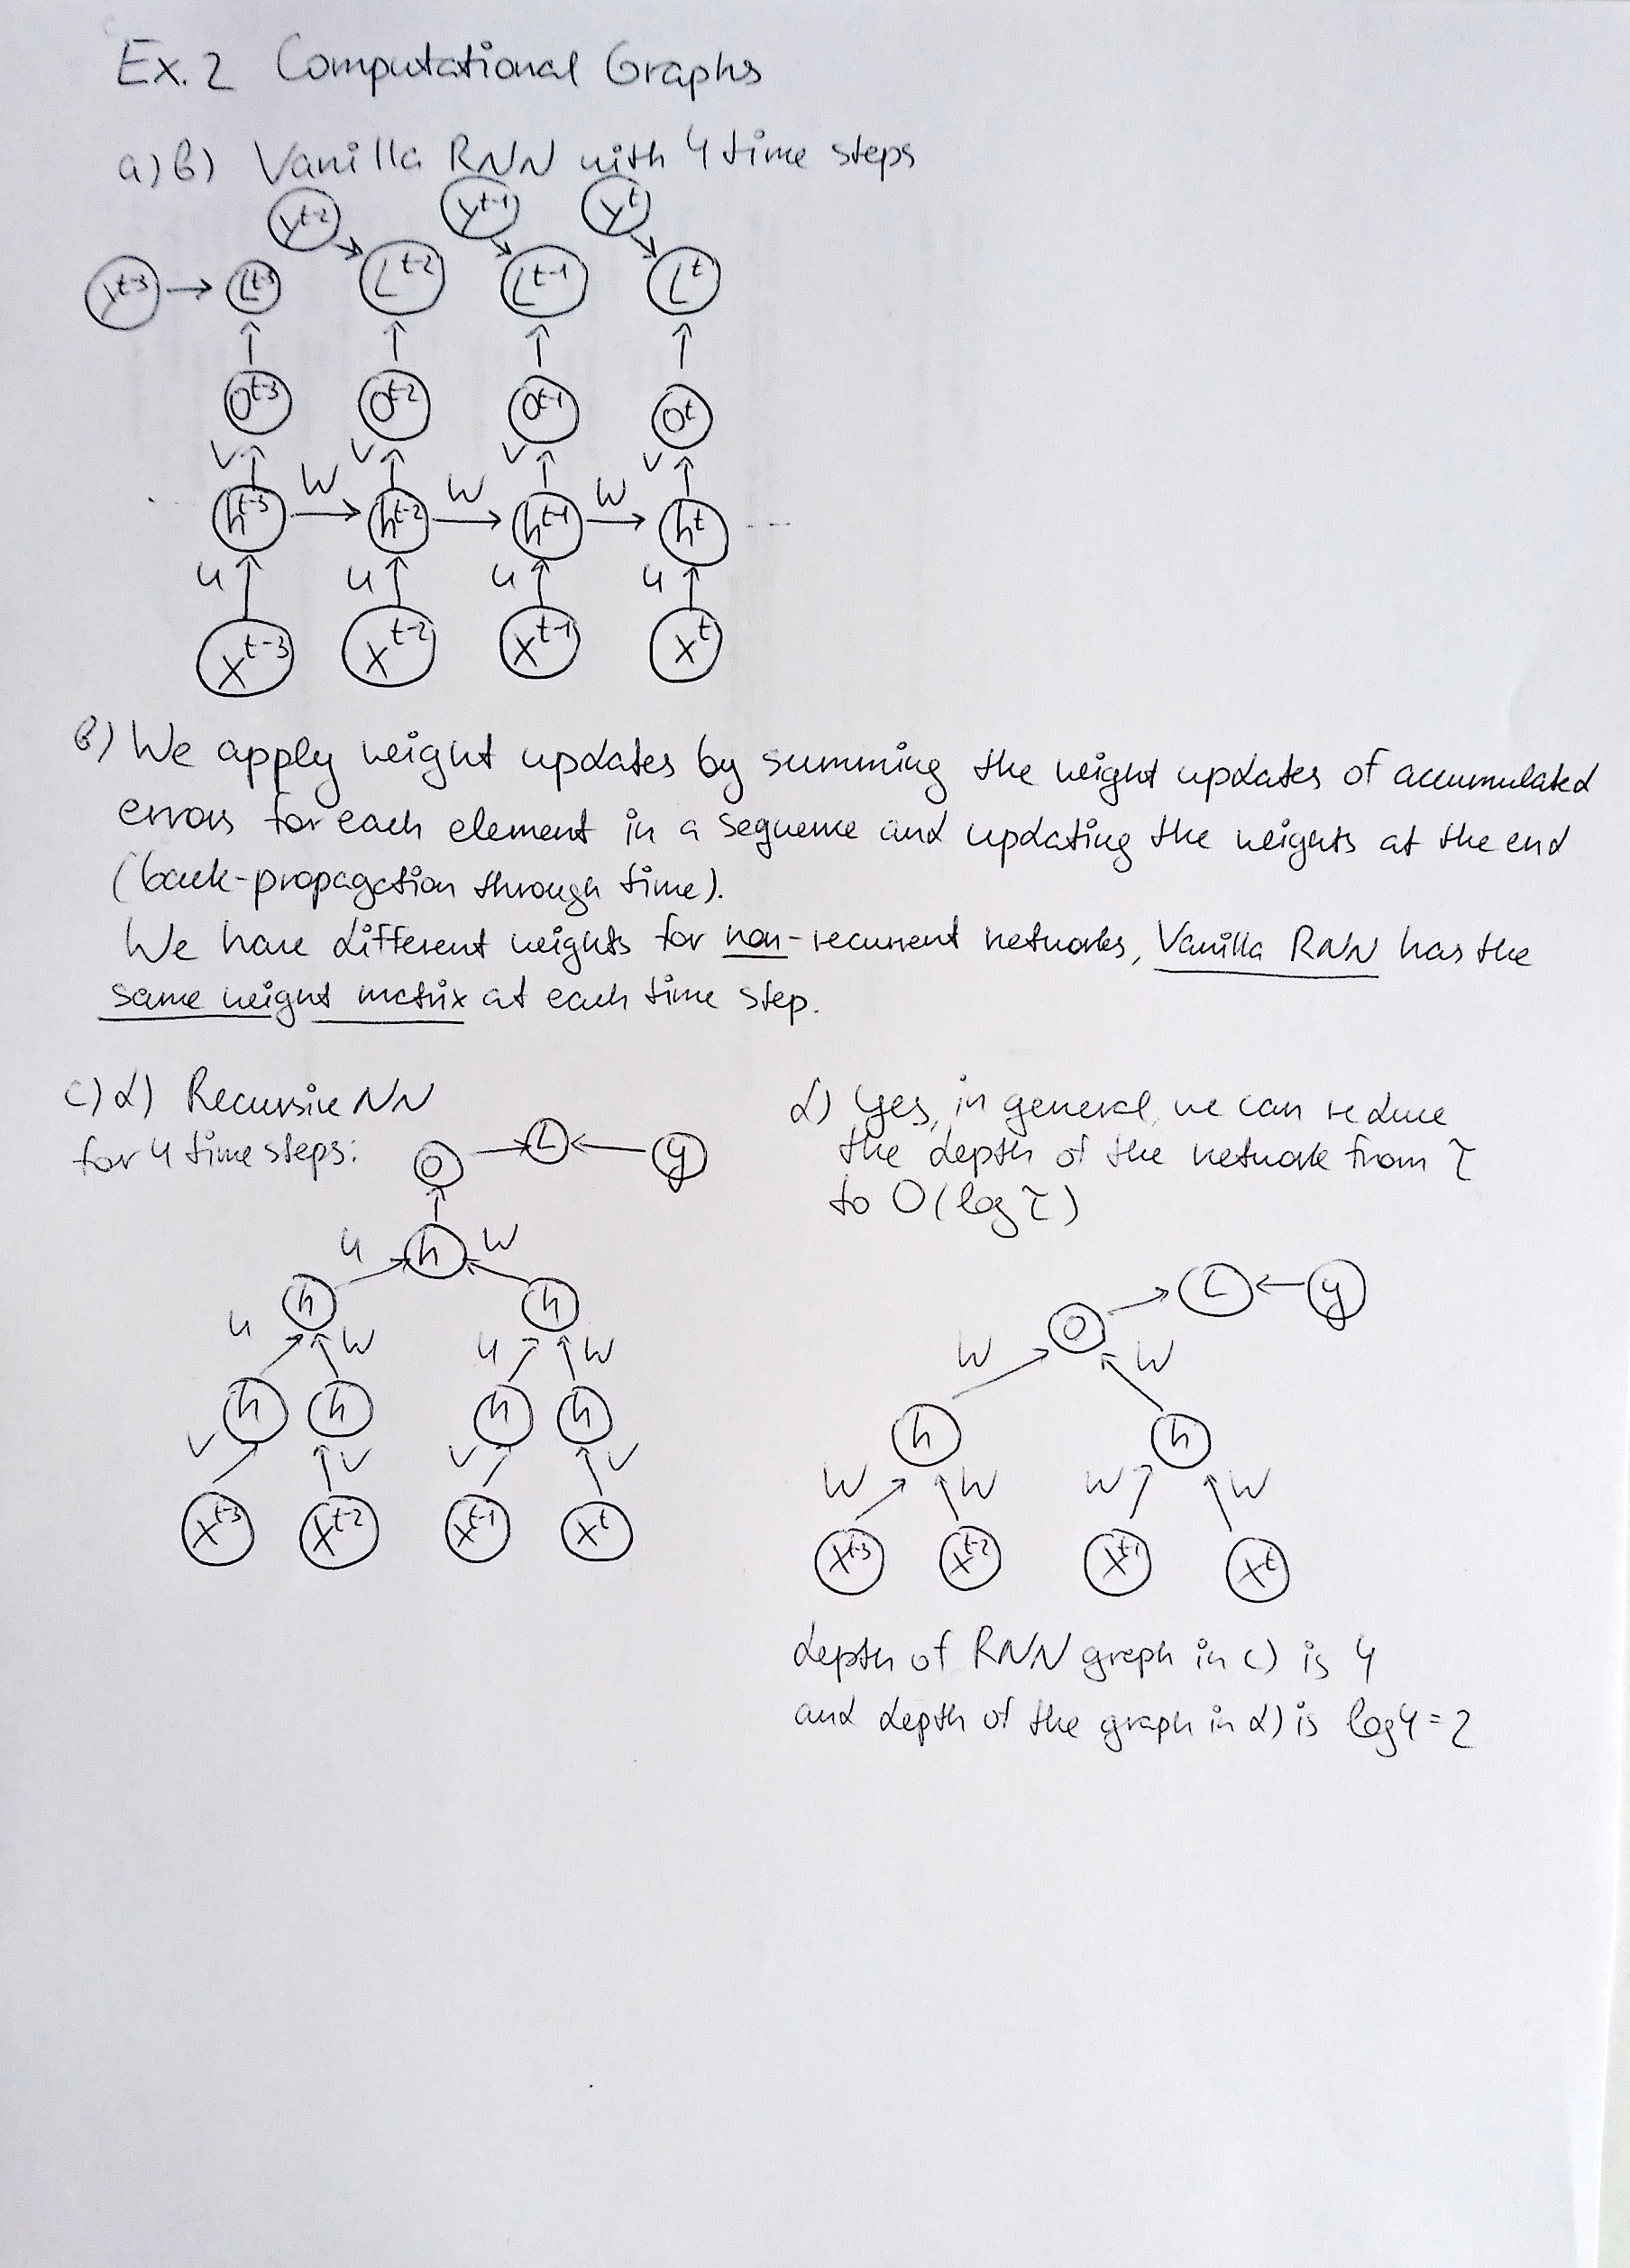 Ex. 2 Computational Graphs
a) b) Vanilla RNN with 4 time steps
y^t-2 y^t-1 y^t
y^t-3 L^t-3 L^t-2 L^t-1 L^t
O^t-3 O^t-2 O^t-1 O^t
V V V V
W W W
h^t-3 h^t-2 h^t-1 h^t
U U U U
x^t-3 x^t-2 x^t-1 x^t
b) We apply weight updates by summing the weight updates of accumulated
errors for each element in a sequence and updating the weights at the end
(back-propagation through time).
We have different weights for non-recurrent networks, Vanilla RNN has the
same weight matrix at each time step.
c) d) Recursive NN
for 4 time steps:
O L y
h
U W
h h
U W U W
h h h h
V V V V
x^t-3 x^t-2 x^t-1 x^t
d) Yes, in general, we can reduce
the depth of the network from τ
to O(log τ)
L y
O
W W
h h
W W W W
x^t-3 x^t-2 x^t-1 x^t
depth of RNN graph in c) is 4
and depth of the graph in d) is log4=2